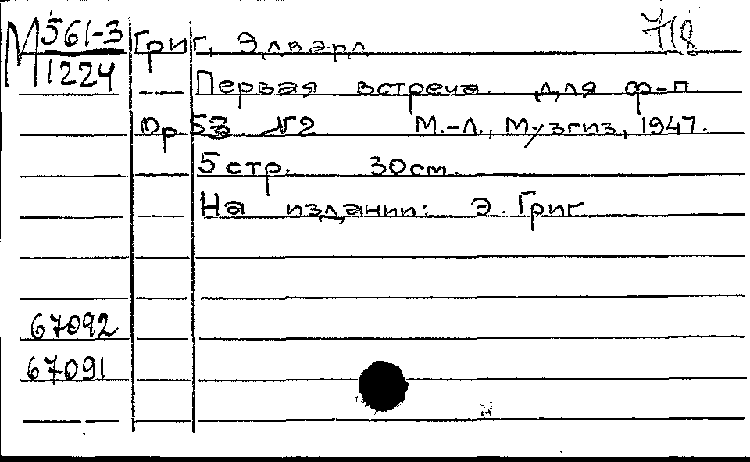 М 561-3 Григ, Эдвард 718
1224
— Первая встреча. Для ф-п
Op 53 №2 М.-Л., Музгиз, 1947.
5 стр. 30см.
На издании: Э. Григ
67092
67091